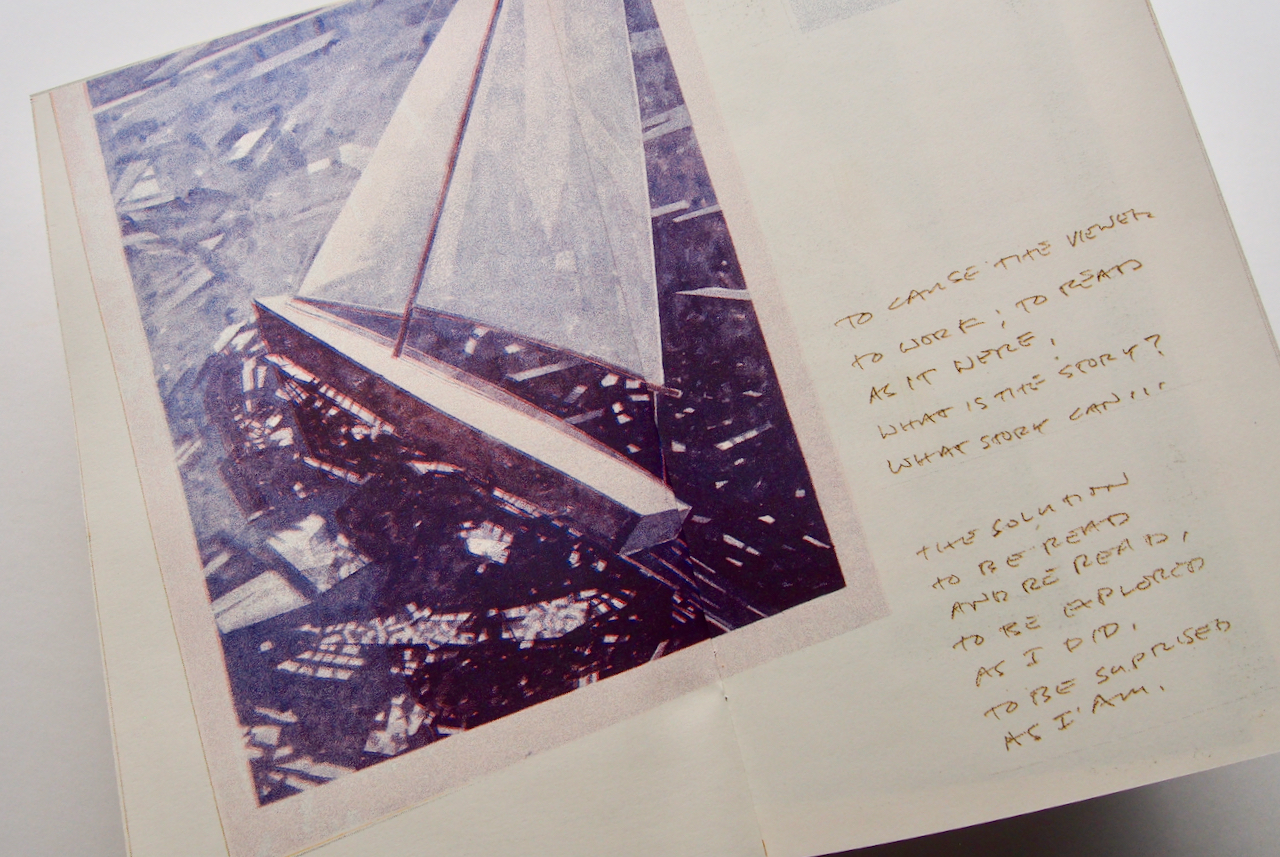 TO CAUSE THE VIEWER
TO WORK; TO READ
AS IT WERE,
WHAT IS THE STORY?
WHAT STORY CAN...
THE SOLUTION
TO BE READ
AND RE READ,
TO BE EXPLORED
AS I DID,
TO BE SUPRISED
AS I AM.